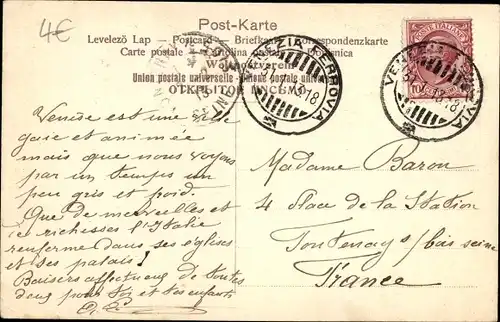 4€
Post-Karte
Levelező Lap — Postcard — Briefkaart — Correspondenzkarte
Carte postale — Cartolina postale —
Weltpostverein
Union postale universelle — Unione postale univers
ОТКРЫТОЕ ПИСЬМО
VENEZIA FERROVIA
VENEZIA FERROVIA
POSTE ITALIANE
10
Venise est une ville
gaie et animée
mais que nous voyons
par un temps un
peu gris et froid.
Que de merveilles et
de richesses l'Italie
renferme dans ses églises
et ses palais!
Baisers affectueux de toutes
deux pour toi et tes enfants
Madame Baron
4 place de la Station
Fontenay s/ bois seine
France